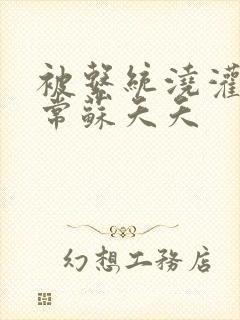 被繫統澆灌
常蘇夭夭
幻想工務店